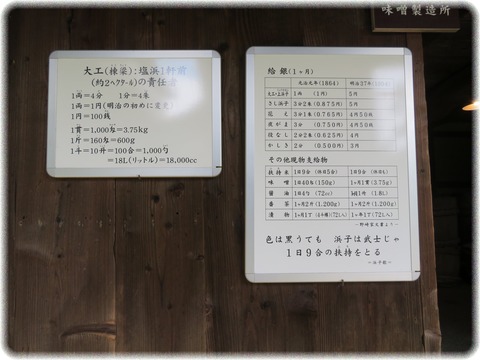 味噌製造所
大工(棟梁):塩浜1軒前
(約2ヘクタール)の責任者
1両=4分 1分=4朱
1両=1円(明治の初めに変更)
1円=100銭
1貫=1,000匁=3.75kg
1斤=160匁=600g
1斗=10升=100合=1,000勺
=18L(リットル)=18,000cc
給銀(1ヶ月)
元治元年(1864) 明治37年
1両 (1円) 5円
さし浜子 3分2朱(0.875円) 5円
3分1朱(0.765円) 4円50銭
3分 (0.750円) 4円50銭
2分2朱(0.625円) 4円
かしき 2分 (0.500円) 3円
その他現物支給物
扶持米 1日9合 1日9合
味噌 1日40匁(150g) 1ヶ月1貫(3.75g)
醤油 1日4勺 (72cc) 1升(1.8L)
番茶 1ヶ月2斤(1,200g) 1ヶ月2斤(1,200g)
漬物
~野崎家文書より~
色は黒うても 浜子は武士じゃ
1日9合の扶持をとる